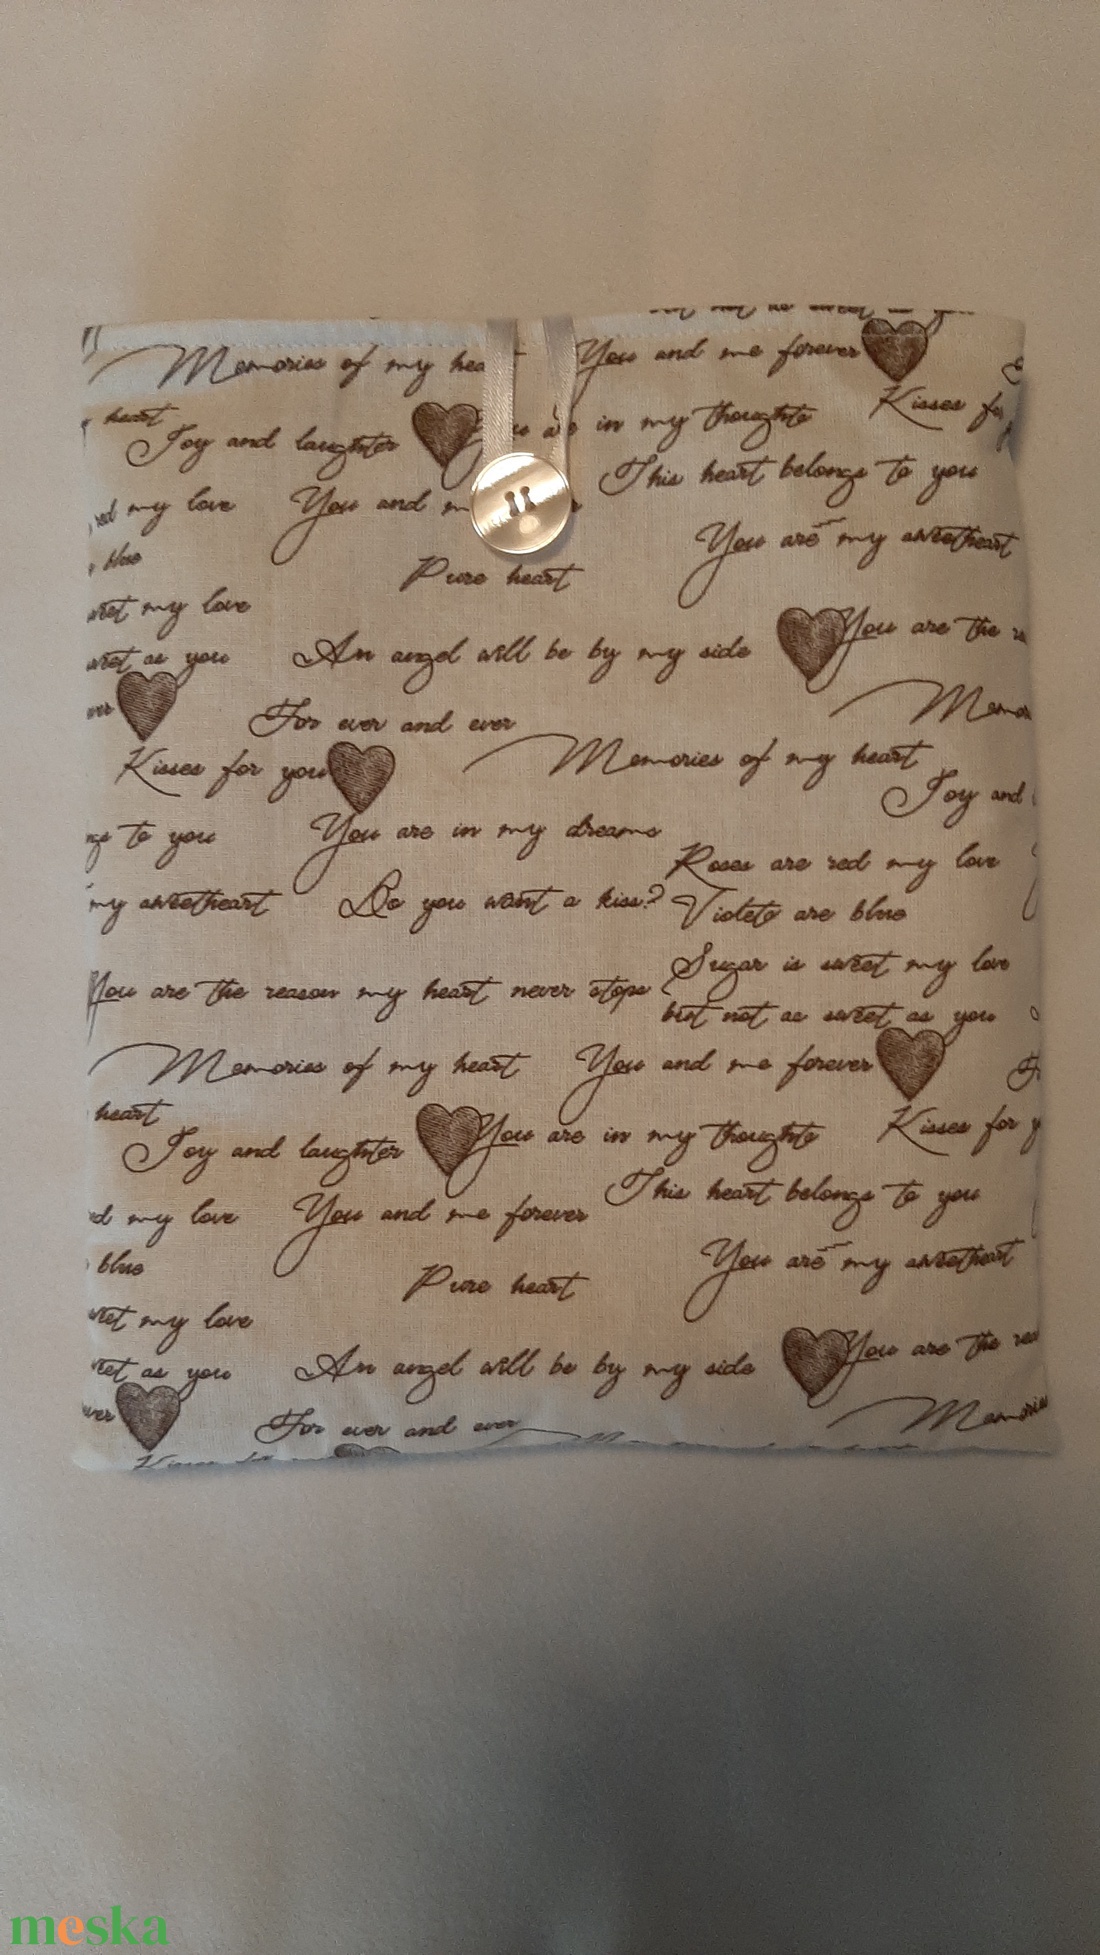 Memories of my hea
You and me forever
heart
Kisses fo
Joy and laughter
in my thoughts
This heart belongs to you
red my love
You and m
You are my sweetheart
blue
Pure heart
my love
An angel will be by my side
You are the
as you
For ever and ever
Memories of my heart
Kisses for you
Joy and
to you
You are in my dreams
Roses are red my love
my sweetheart
Do you want a kiss?
Violets are blue
Sugar is sweet my love
You are the reason my heart never stops
but not as sweet as you
Memories of my heart
You and me forever
heart
Kisses for y
Joy and laughter
You are in my thoughts
This heart belongs to you
my love
You and me forever
You are my sweetheart
blue
Pure heart
my love
An angel will be by my side
You are the rea
as you
For ever and ever
Memories
meska